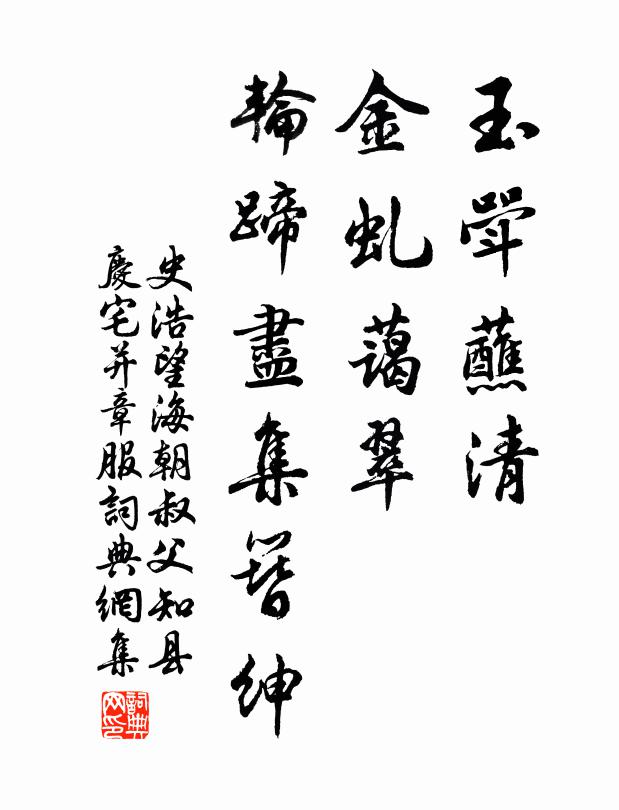 玉斝蘸清
金虬蔼翠
輪蹄盡集簪紳
史浩望海朝叔父知县
慶宅并章服詞典網集
詞典网印